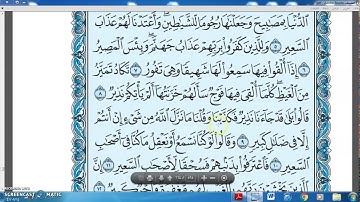 الدُّنْيَا بِمَصَٰبِيحَ وَجَعَلْنَٰهَا رُجُومًا لِّلشَّيَٰطِينِ وَأَعْتَدْنَا لَهُمْ عَذَابَ
السَّعِيرِ ٥ وَلِلَّذِينَ كَفَرُوا۟ بِرَبِّهِمْ عَذَابُ جَهَنَّمَ وَبِئْسَ الْمَصِيرُ
٦ إِذَآ أُلْقُوا۟ فِيهَا سَمِعُوا۟ لَهَا شَهِيقًا وَهِىَ تَفُورُ ٧ تَكَادُ تَمَيَّزُ
مِنَ الْغَيْظِ كُلَّمَآ أُلْقِىَ فِيهَا فَوْجٌ سَأَلَهُمْ خَزَنَتُهَآ أَلَمْ يَأْتِكُمْ نَذِيرٌ ٨
قَالُوا۟ بَلَىٰ قَدْ جَآءَنَا نَذِيرٌ فَكَذَّبْنَا وَقُلْنَا مَا نَزَّلَ اللَّهُ مِن شَىْءٍ إِنْ أَنتُمْ
إِلَّا فِى ضَلَٰلٍ كَبِيرٍ ٩ وَقَالُوا۟ لَوْ كُنَّا نَسْمَعُ أَوْ نَعْقِلُ مَا كُنَّا فِىٓ أَصْحَٰبِ
السَّعِيرِ ١٠ فَاعْتَرَفُوا۟ بِذَنۢبِهِمْ فَسُحْقًا لِّأَصْحَٰبِ السَّعِيرِ ١١
SCREENCAST MATIC